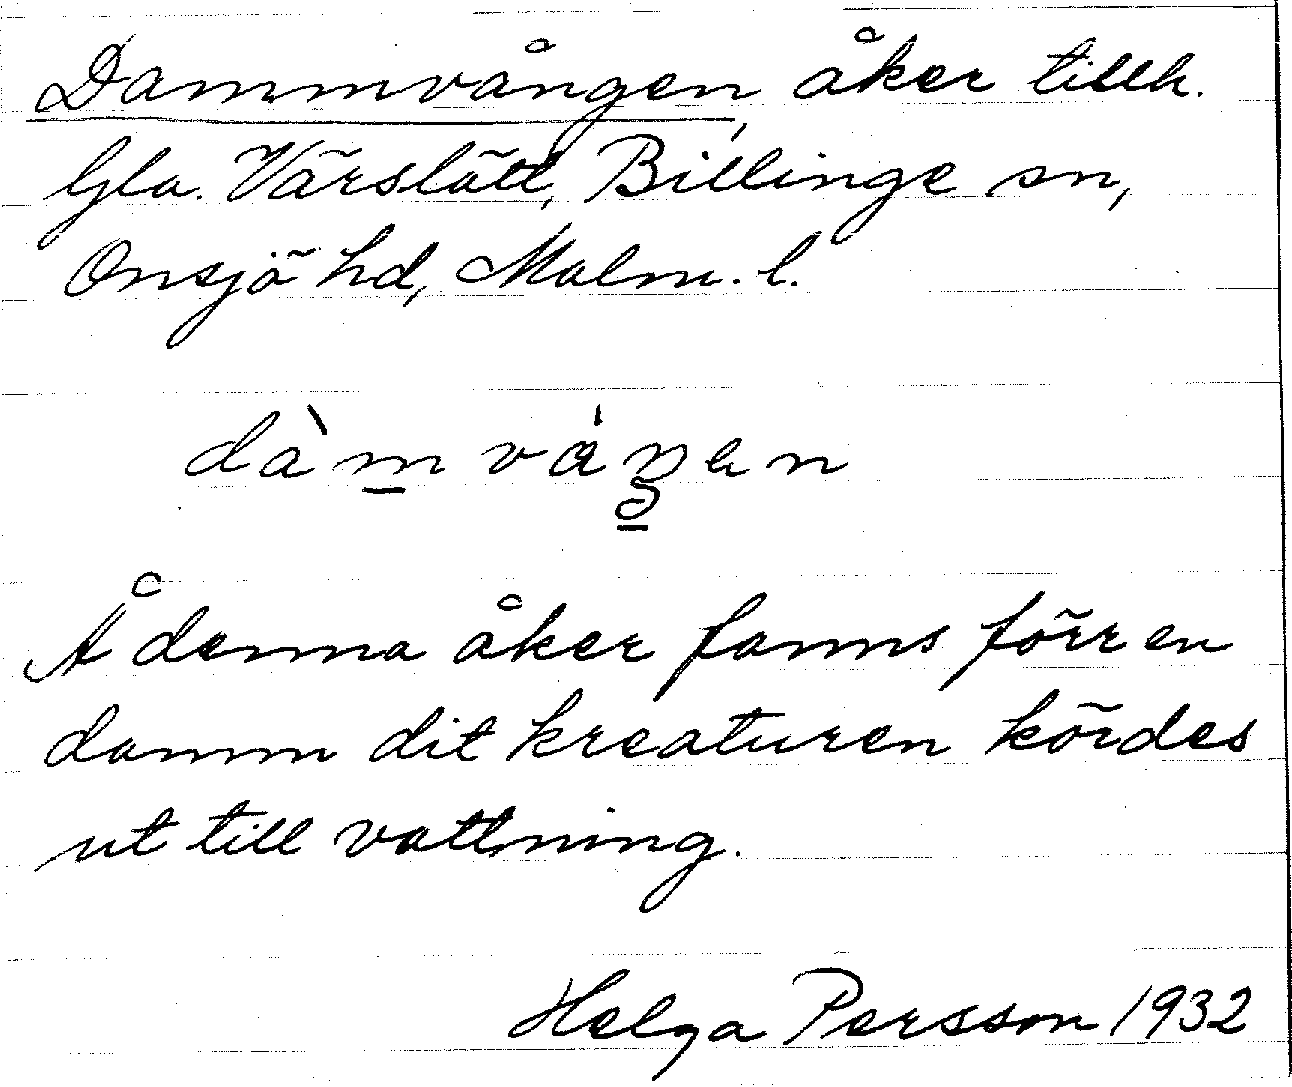 Dammvången, åker tillh.
Gla. Värslätt, Billinge sn,
Onsjö hd, Malm. l.
dàm váŋen
Å denna åker fanns förr en
damm dit kreaturen kördes
ut till vattning.
Helga Persson 1932